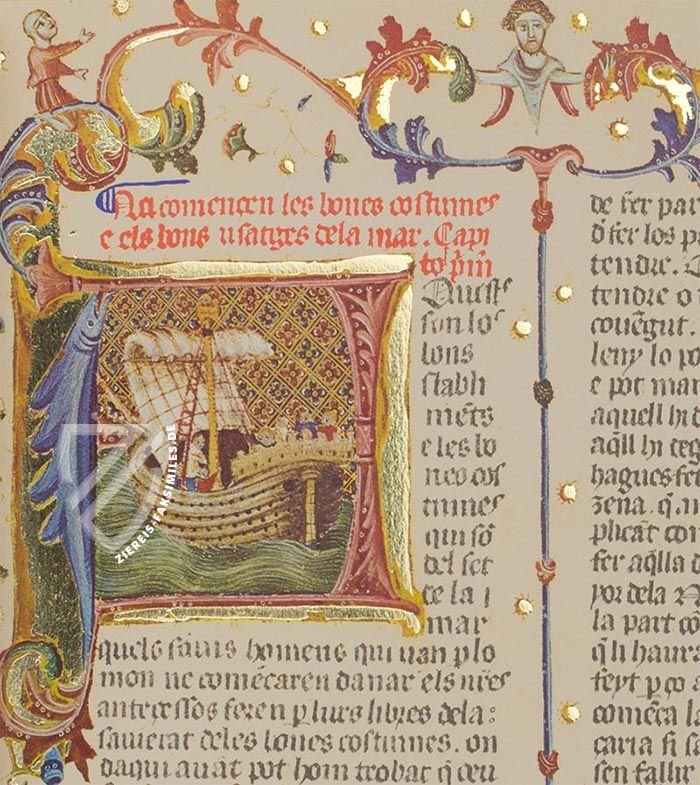 Aci comencen les bones costumes
e els bons usatges dela mar. Capi
tol p̄m
Aqueste
son los
bons
stabli
mēts
e les bo
nes cos
tumes
qui sō
del fet
de la
mar
quels savis homens qui van p̱ lo
mon ne comēcaren danar els nr̄es
antecessos feren p̱ lurs libres dela
saviesa deles bones costumes. on
daqui avāt pot hom trobar q̄
de fer par
d fer los p
tendre.
tendre o
covēgut.
leny lo po
e pot mar
aquell hi
aq̄ll hi
hagues fet
zena. q̄.
plicar con
fer aq̄lla
yor dela
la part co
q̄ li haura
feyt p̱ço
comēca
caria si
sen fallir
ZIEREIS-FAKSIMILES.DE